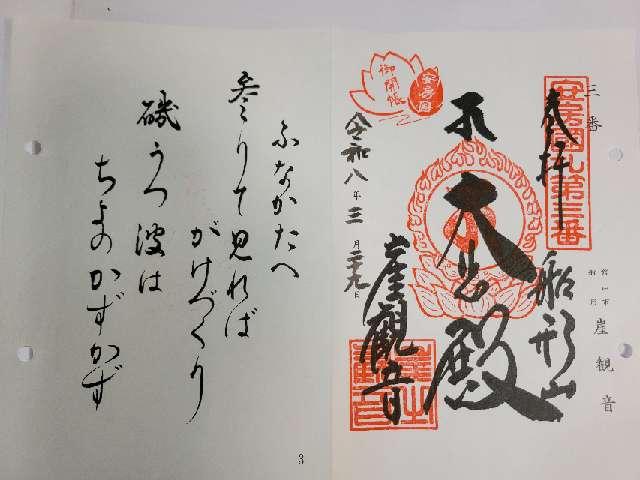 三番
安房国札第三番
奉拝
船形山
館山市
船形
崖観音
大悲殿
崖観音
令和八年三月二十九日
御開帳
安房国
ふなかたへ
参りて見れば
がけづくり
磯うつ波は
ちよのかずかず
3